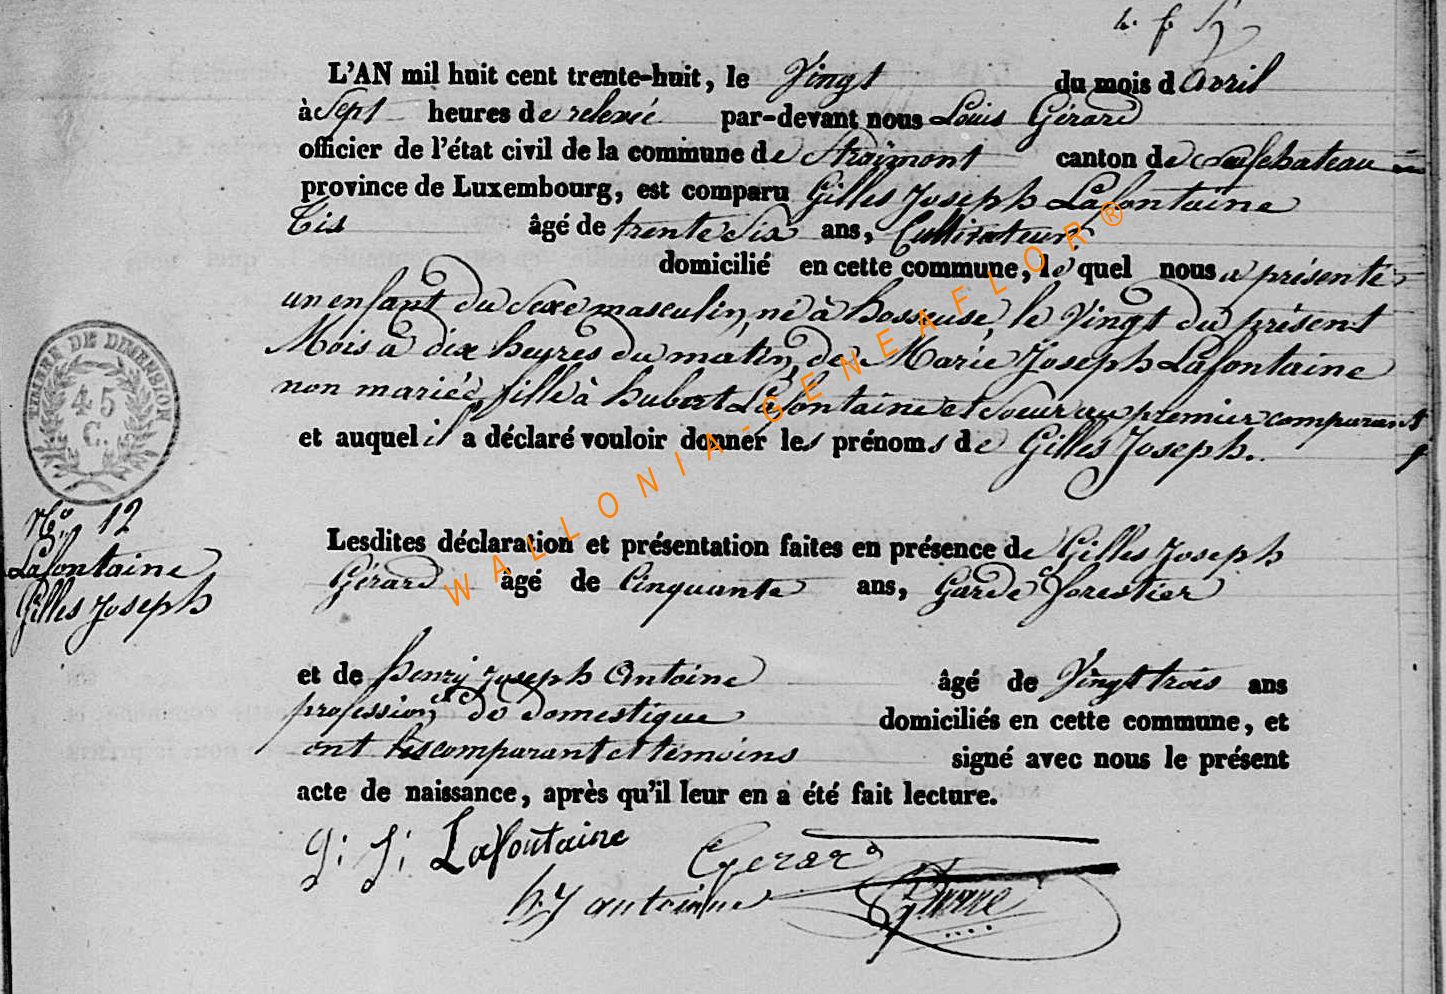 L'AN mil huit cent trente-huit, le Vingt du mois d avril
à Sept heures de relevée par-devant nous Louis Gérard
officier de l'état civil de la commune de Straimont canton de Neufchateau
province de Luxembourg, est comparu Gilles Joseph Lafontaine
âgé de trente Six ans, Cultivateur
domicilié en cette commune, le quel nous a présenté
un enfant du Sexe masculin, né à hosseuse, le Vingt du présent
Mois à dix heures du matin, de Marie Joseph Lafontaine
non mariée, fille à hubert Lafontaine et Soeur au premier comparant
et auquel il a déclaré vouloir donner les prénoms de Gilles Joseph.
TIMBRE DE DIMENSION
45
C.
No. 12
Lafontaine
Gilles Joseph
Lesdites déclaration et présentation faites en présence de Gilles Joseph
Gérard âgé de Cinquante ans, Garde forestier
et de henry Joseph Antoine âgé de Vingt trois ans
profession de domestique domiciliés en cette commune, et
ont les comparant et témoins signé avec nous le présent
acte de naissance, après qu'il leur en a été fait lecture.
g: j: Lafontaine Gerard
h j antoine
WALLONIA-GENEAFLOR®